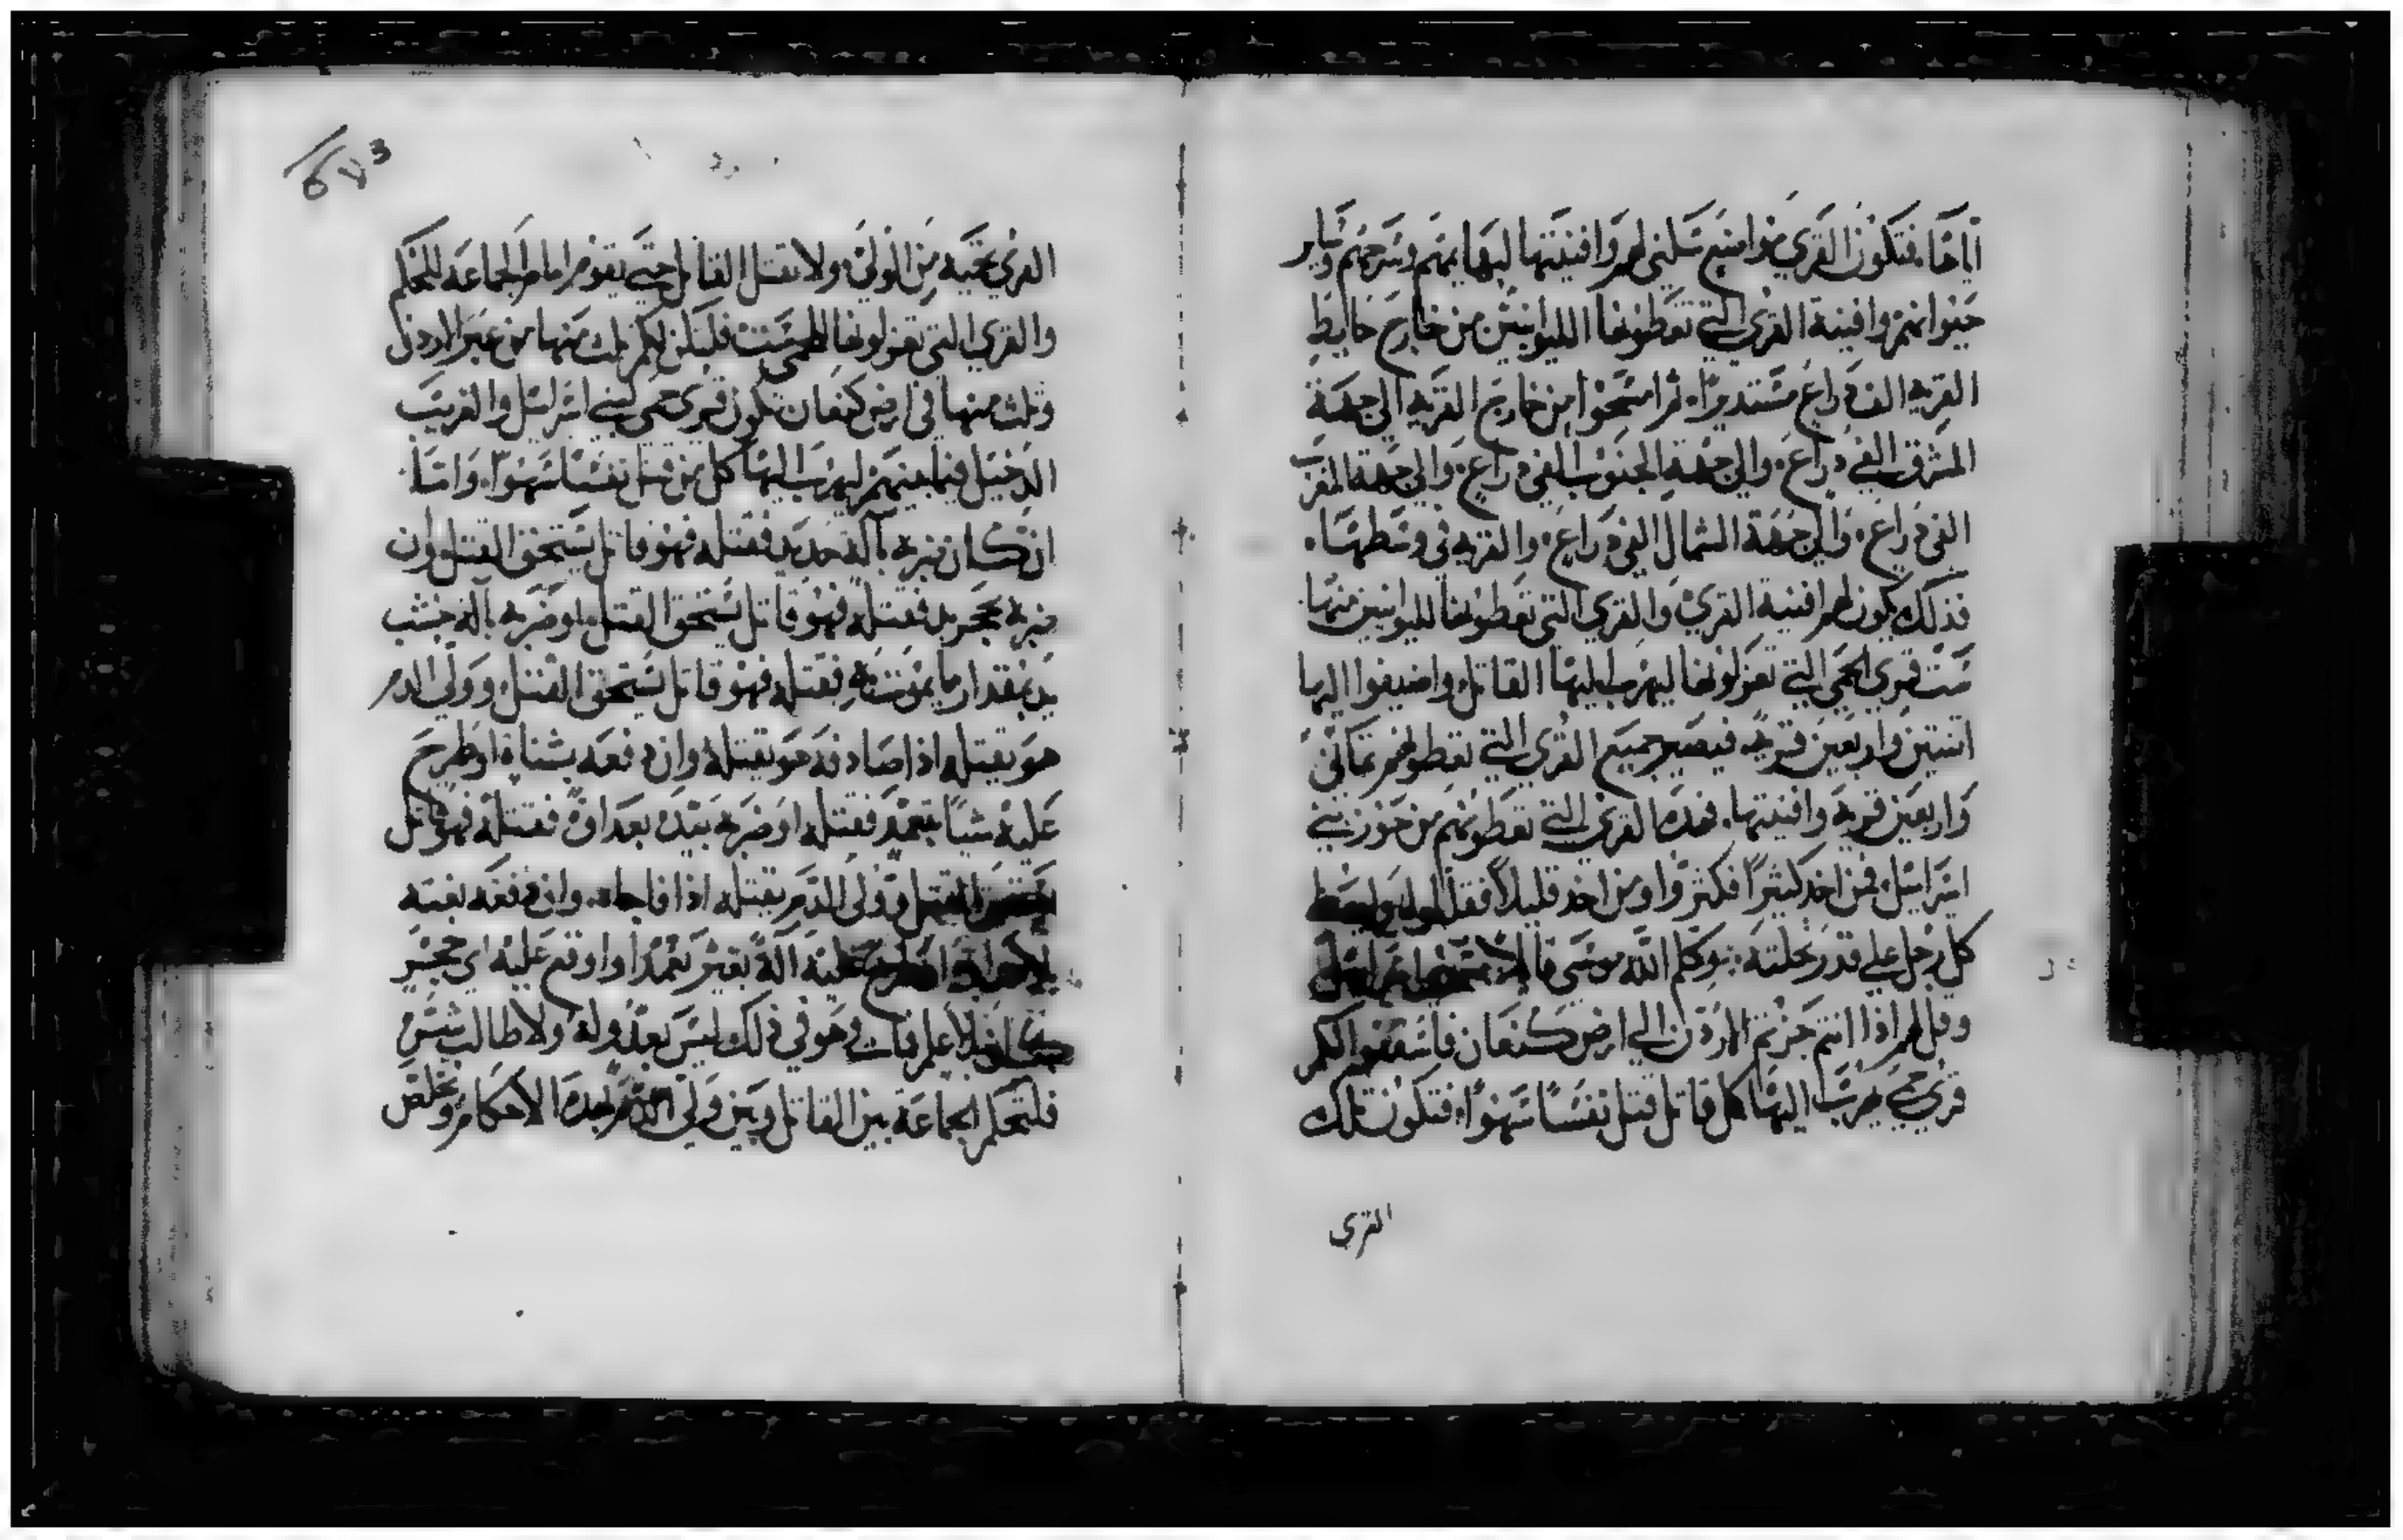 اياها فتكون القري مواضع سكني لهم وافنيتها لبهايمهم وسرحهم وساير
حيوانهم وافنية القري التي تعطونها الليوانيين من خارج حايط
القريه الف دراع مستديرا. ثم امسحوا من خارج القريه الي جهة
المشرق الفي دراع. والي جهة الجنوب الفي دراع. والي جهة المغرب
الفي دراع. والي جهة الشمال الفي دراع. والقريه في وسطها.
فذلك يكون لهم افنية القري والقري التي تعطونها لليوانيين منها
ست قري الحمي التي تعزلونها ليهرب اليها القاتل واضيفوا اليها
اثنتين واربعين قريه فيصير جميع القري التي تعطونهم ثماني
واربعين قريه وافنيتها. فهذه القري التي تعطونهم من حوز بني
اسراييل فمن اخد كثيرا فكثروا ومن اخد قليلا فقللوا له وليعط
كل رجل علي قدر نحلته. وكلم الله موسي قايلا
وقل لهم اذا انتم جزتم الاردن الي ارض كنعان فاسقفوا لكم
قري يهرب اليها كل قاتل قتل نفسا سهوا. فتكون تلك
القري
القري محميه من الولي ولا يقتل القاتل حتي يقوم امام الجماعه للحكم
والقري التي تعزلونها الحمي ست فليكن لكم ثلث منها من عبر الاردن
وثلث منها في ارض كنعان تكون قري حمي لبني اسراييل والغريب
الدخيل فيما بينهم ليهرب اليها كل من قتل نفسا سهوا. واما
ان كان ضربه بآلة حديد فقتله فهو قاتل يستحق القتل وان
ضربه بحجر يد فقتله فهو قاتل يستحق القتل او ضربه بآلة خشب
يد بمقدار ما يموت به فقتله فهو قاتل يستحق القتل وولي الدم
هو يقتله اذا صادفه هو يقتله وان دفعه بشناة او طرح
عليه شيا بتعمد فقتله او ضربه بيده بعداوة فقتله فهو قاتل
يستحق القتل وولي الدم يقتله اذا فاجاه. وان دفعه بغته
بلا عداوة او طرح عليه آلة بغير تعمد او اوقع عليه اي حجر
كان بلا علم فمات وهو في ذلك ليس بعدو له ولا طالب شر
فلتحكم الجماعة بين القاتل وبين ولي الدم بهذه الاحكام وتخلص